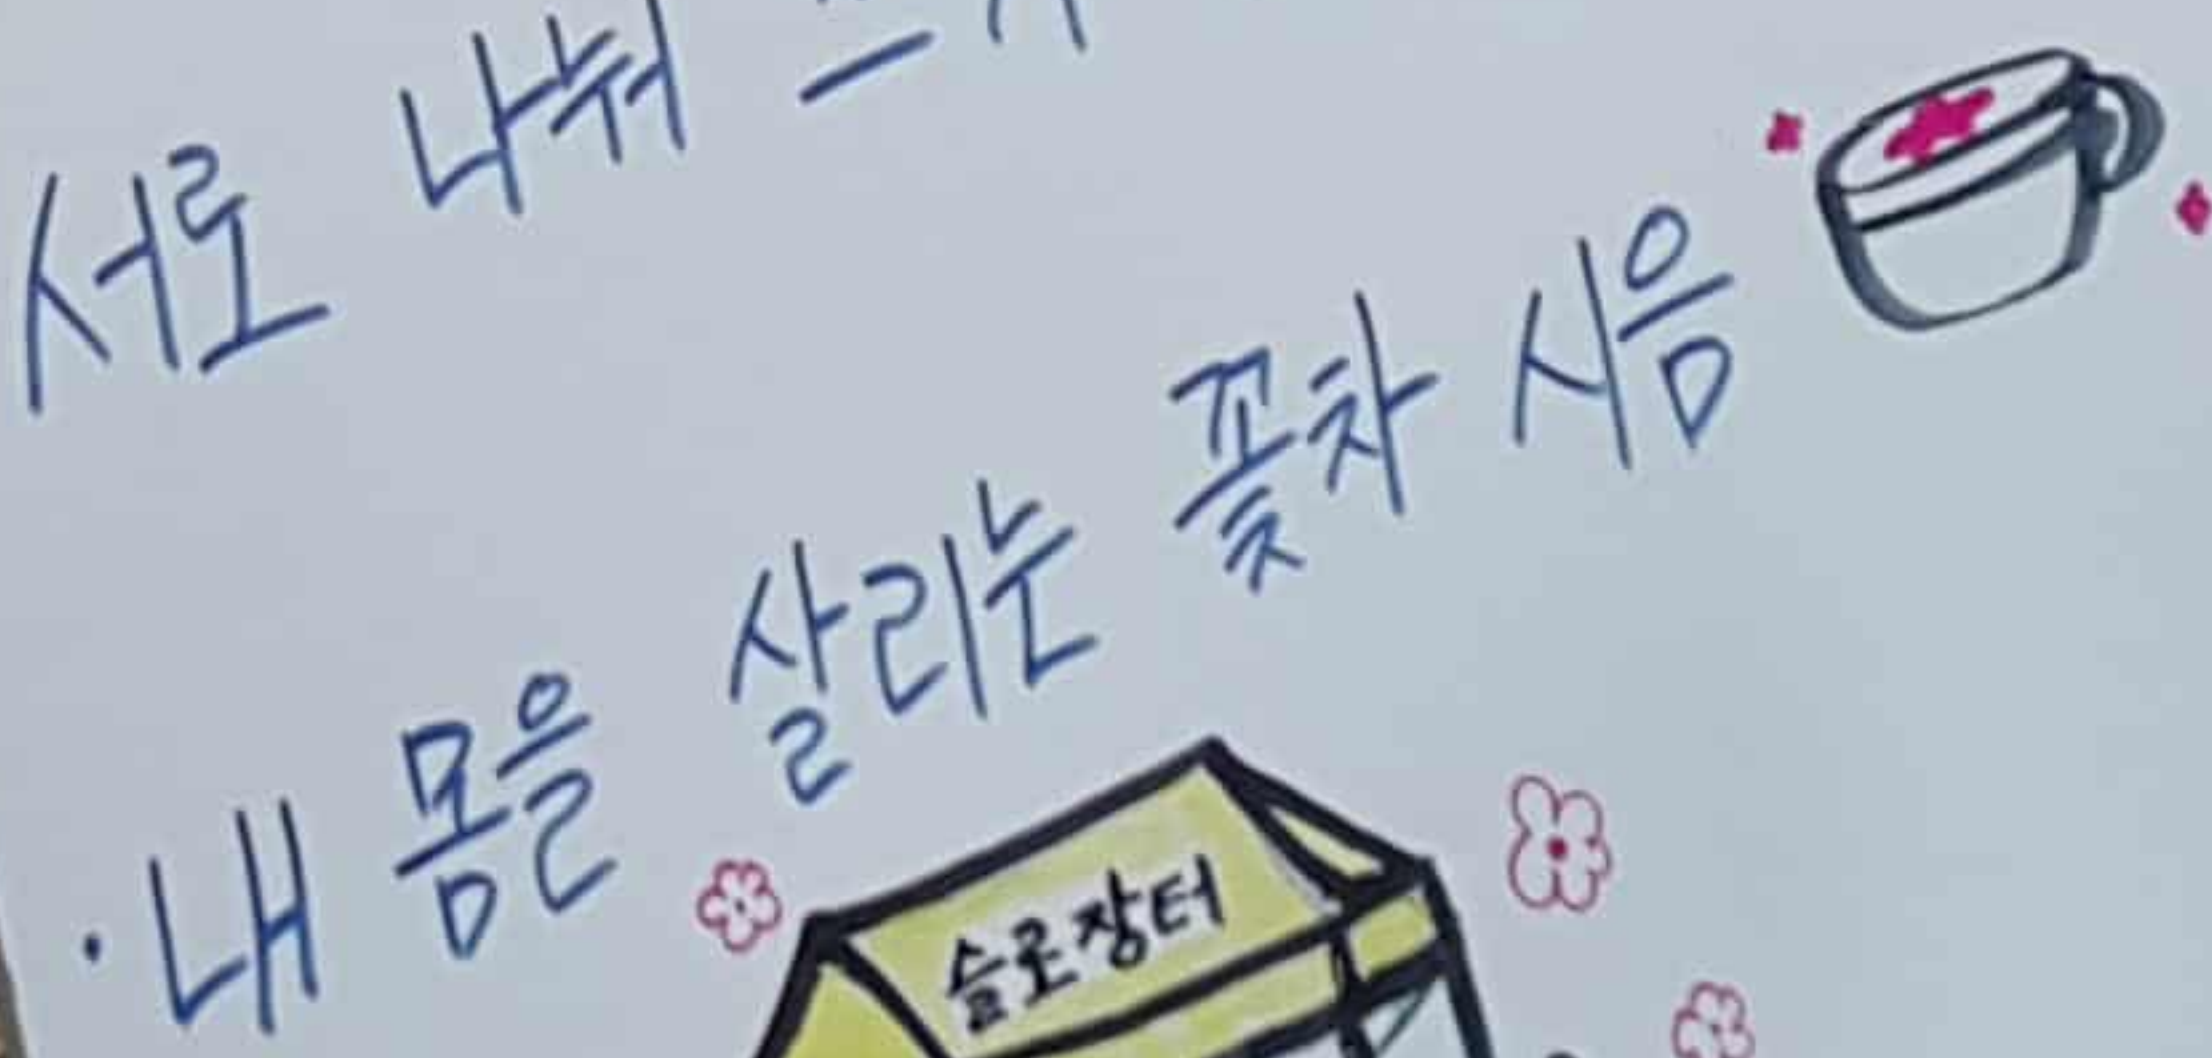 서로 나눠
· 내 몸을 살리는 꽃차 시음
슬로장터